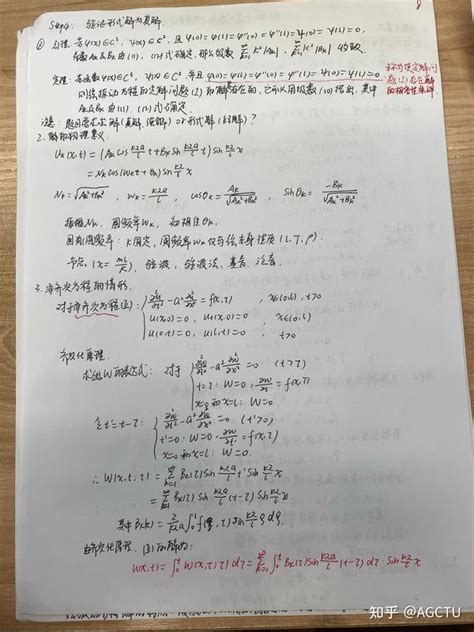 Step4: 验证形式解为真解.
① 引理: 若φ(x)∈C³, ψ(x)∈C², 且 φ(0)=φ(l)=φ''(0)=φ''(l)=ψ(0)=ψ(l)=0,
收敛.
定理: 若函数φ(x)∈C³, ψ(x)∈C², 并且 φ(0)=φ(l)=φ''(0)=φ''(l)=ψ(0)=ψ(l)=0
则弦振动方程的定解问题(2)的解存在的, 它可以用级数(10)给出, 其中
Ak及Bk由(11), (12)式确定.
2. 解的物理意义
Uk(x,t) = (Ak cos kπa/l t + Bk sin kπa/l t) sin kπ/l x
= Nk cos(Wkt+θk) sin kπ/l x
Nk = √(Ak²+Bk²), Wk = kπa/l, cosθk = Ak/√(Ak²+Bk²), sinθk = -Bk/√(Ak²+Bk²)
振幅Nk, 圆频率Wk, 初相位θk.
固有圆频率: k固定, 圆频率Wk仅与弦本身性质(L, T, ρ)
节点(x = ml/k), 驻波, 驻波法, 基音, 泛音.
3. 非齐次方程的情形.
对于非齐次方程(Ⅱ): { ∂²u/∂t² - a² ∂²u/∂x² = f(x,t), x∈(0,l), t>0
u(x,0)=0, ut(x,0)=0 x∈(0,l)
u(0,t)=0, u(l,t)=0 t>0
齐次化原理.
求出W的表达式: 对于 { ∂²W/∂t² - a² ∂²W/∂x² = 0 (t>τ)
t=τ: W=0, ∂W/∂t = f(x,τ)
x=0和x=l: W=0
令t'=t-τ: { ∂²W/∂t'² - a² ∂²W/∂x² = 0 (t'>0)
t'=0: W=0, ∂W/∂t' = f(x,τ)
x=0和x=l: W=0
∴ W(x,t;τ) = ∑ Bk(τ) sin kπa/l t' sin kπ/l x
= ∑ Bk(τ) sin kπa/l (t-τ) sin kπ/l x
其中Bk(τ) = 2/kπa ∫ f(ξ,τ) sin kπ/l ξ dξ.
由齐次化原理,
u(x,t) = ∫ W(x,t;τ) dτ = ∑ ∫ Bk(τ) sin kπa/l (t-τ) dτ · sin kπ/l x
知乎 @AGCTU